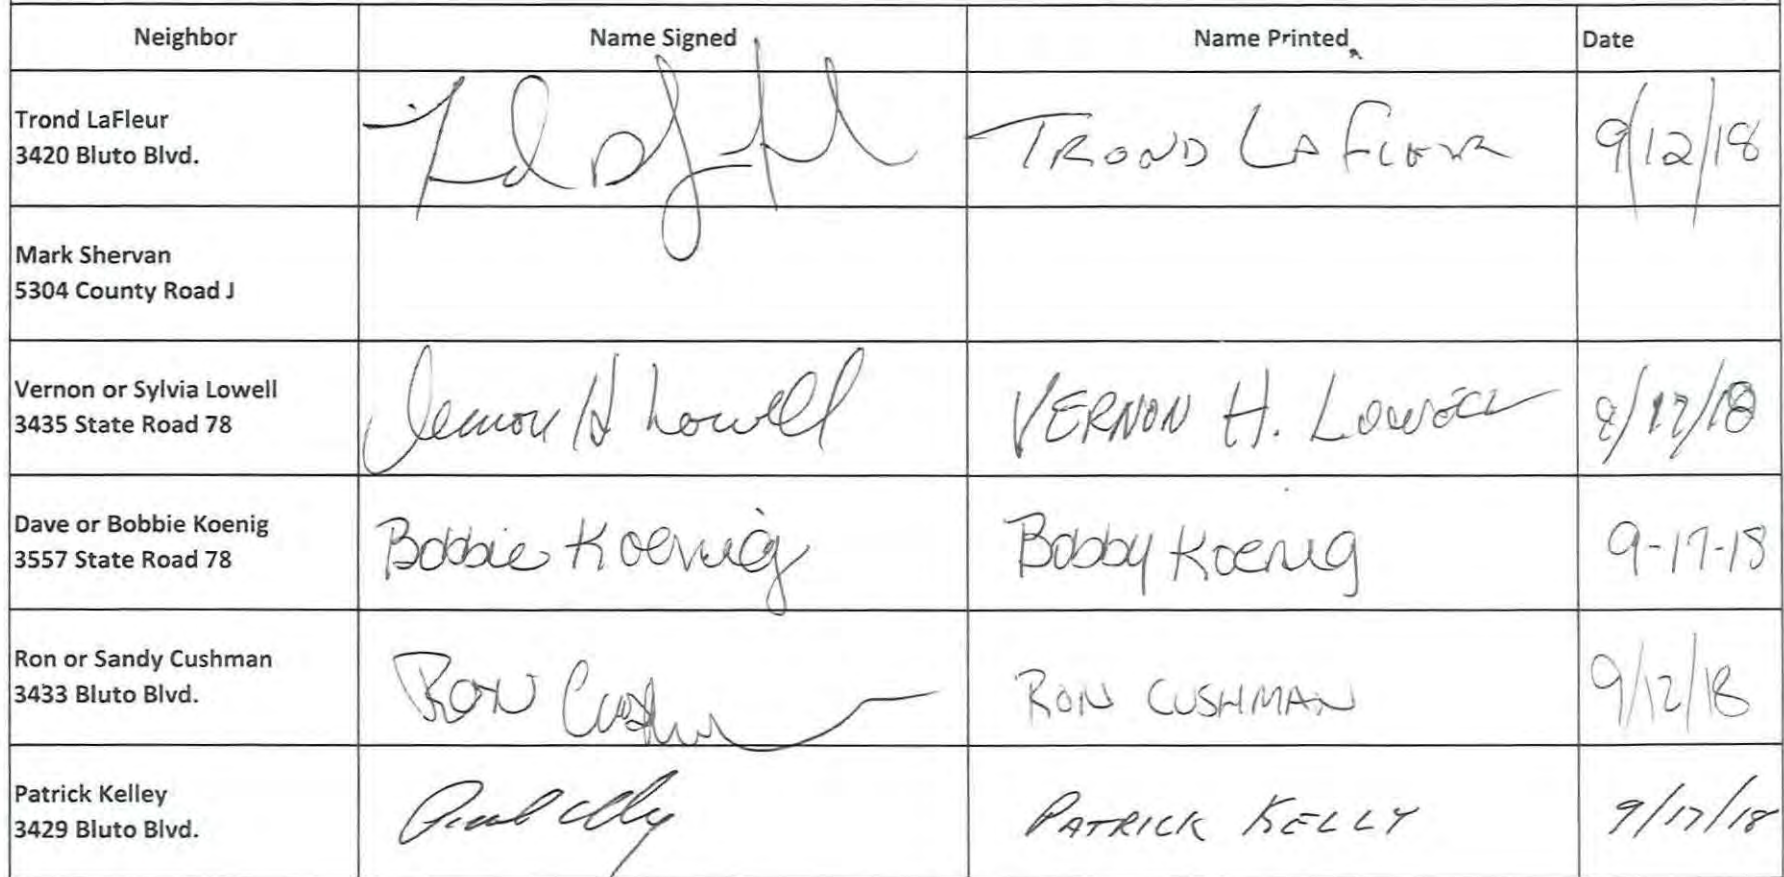 Neighbor Name Signed Name Printed Date
Trond LaFleur
3420 Bluto Blvd.
TROND LAFLEUR 9/12/18
Mark Shervan
5304 County Road J
Vernon or Sylvia Lowell
3435 State Road 78
Vernon H Lowell VERNON H. LOWELL 9/17/18
Dave or Bobbie Koenig
3557 State Road 78
Bobbie Koenig Bobby Koenig 9-17-18
Ron or Sandy Cushman
3433 Bluto Blvd.
RON Cushman RON CUSHMAN 9/12/18
Patrick Kelley
3429 Bluto Blvd.
PATRICK KELLY 9/17/18